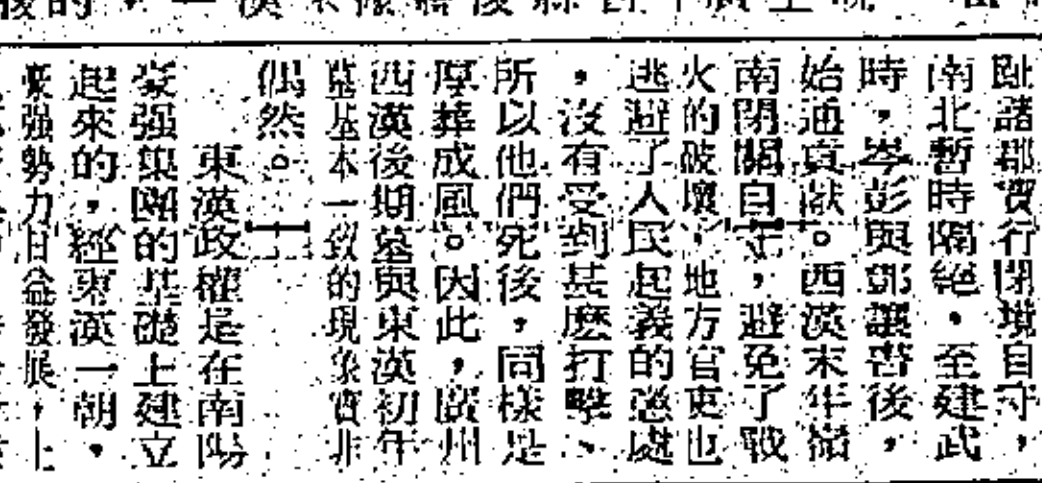 趾諸郡實行閉境自守，
南北暫時隔絕。至建武
時，岑彭與鄧讓書後，
始通貢献。西漢末年嶺
南閉關自守，避免了戰
火的破壞，地方官吏也
逃避了人民起義的懲處
，沒有受到甚麽打擊、
所以他們死後，同樣是
厚葬成風。因此，廣州
西漢後期墓與東漢初年
墓基本一致的現象實非
偶然。
東漢政權是在南陽
豪强集團的基礎上建立
起來的，經東漢一朝，
豪强勢力日益發展，上